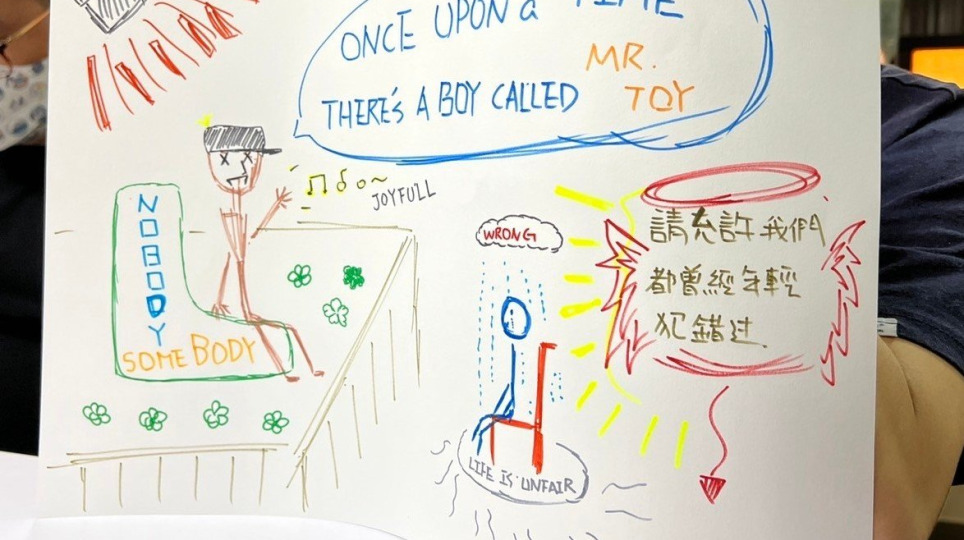 ONCE UPON a TIME
THERE'S A BOY CALLED
MR.
TOY
JOYFULL
NOBODY
SOMEBODY
WRONG
LIFE IS UNFAIR
請允許我們
都曾經年輕
犯錯过.